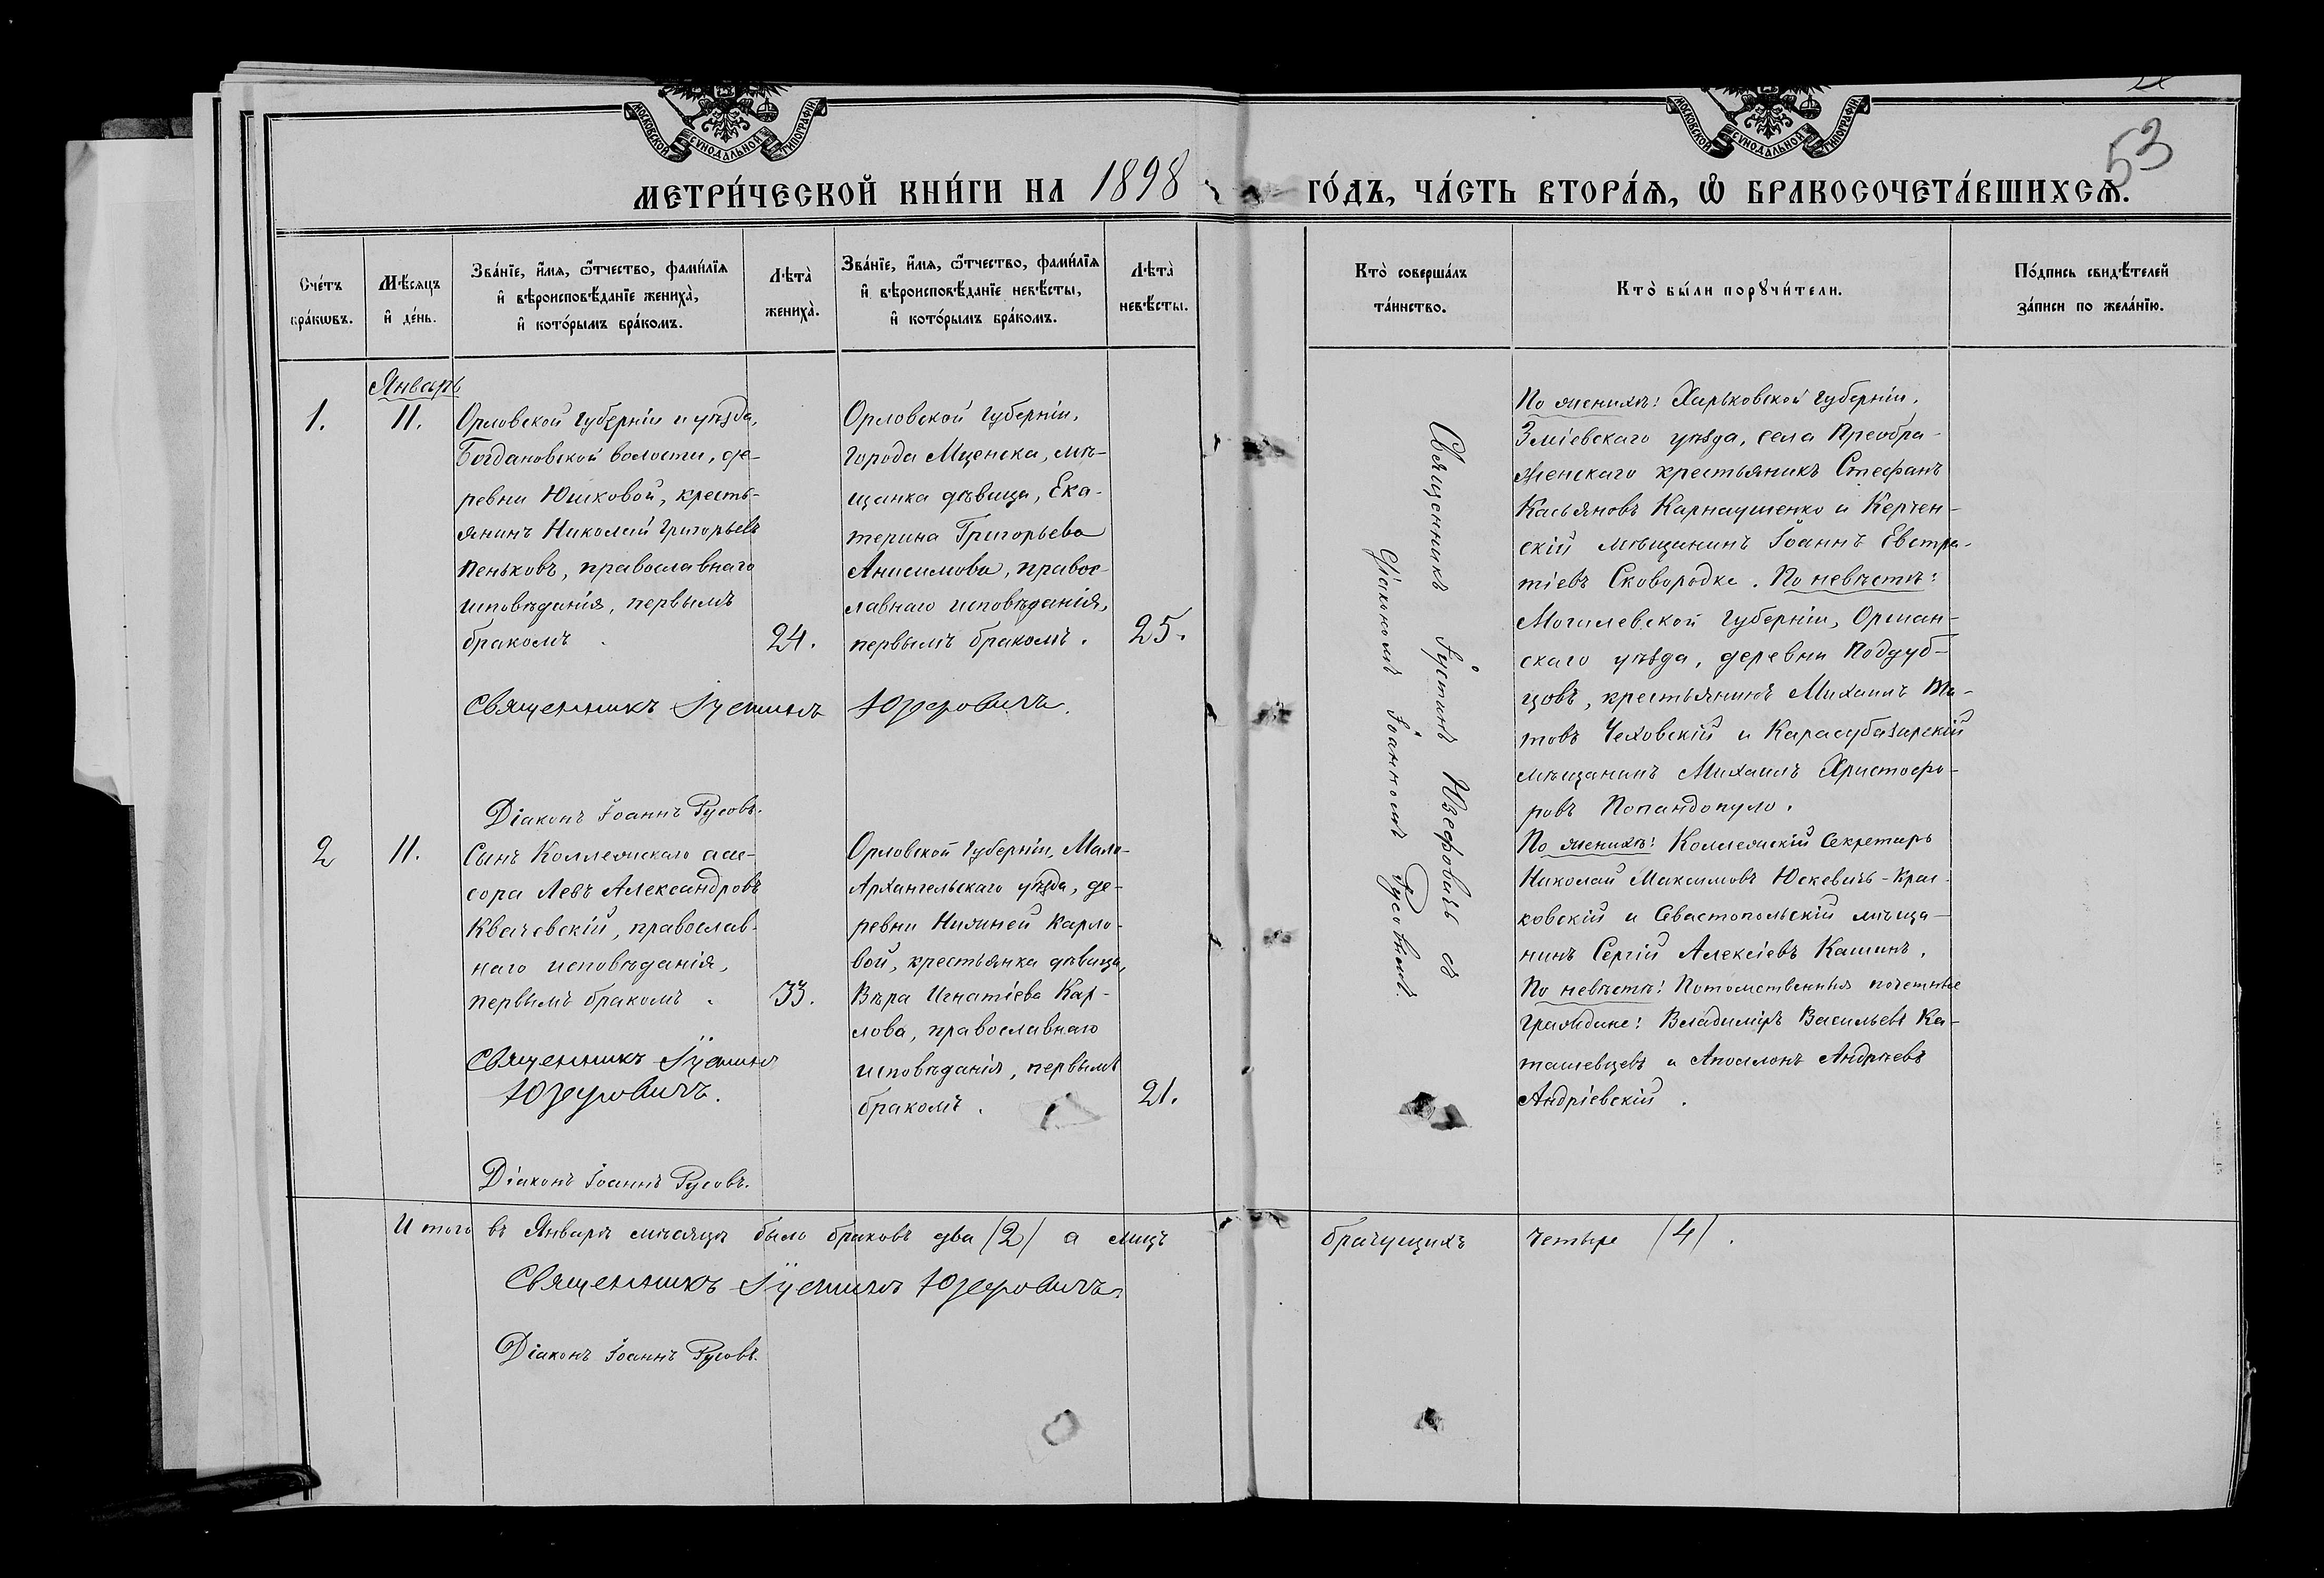 МОСКОВСКОЙ СѴНОДАЛЬНОЙ ТИПОГРАФІИ
МОСКОВСКОЙ СѴНОДАЛЬНОЙ ТИПОГРАФІИ
53
МЕТРИ́ЧЕСКОЙ КНИ́ГИ НА 1898 ГО́ДЪ, ЧА́СТЬ ВТОРА́Ѧ, Ѽ БРАКОСОЧЕТА́ВШИХСѦ.
Сче́тъ
бра́кѡвъ.
Мѣ́сяцъ
и҆ де́нь.
Зва́нїе, и҆́мѧ, ѻ҆́тчество, фами́лїѧ
и҆ вѣроисповѣ́данїе жениха̀,
и҆ кото́рымъ бра́комъ.
Лѣта̀
жениха̀.
Зва́нїе, и҆́мѧ, ѻ҆́тчество, фами́лїѧ
и҆ вѣроисповѣ́данїе невѣ́сты,
и҆ кото́рымъ бра́комъ.
Лѣта̀
невѣ́сты.
Кто̀ соверша́лъ
та́инство.
Кто̀ бы́ли порꙋчи́тели.
По́дпись свидѣ́телей
за́писи по жела́нїю.
Январь
1.
11.
Орловской Губерніи и уѣзда,
Богдановской волости, де-
ревни Юшковой, кресть-
янинъ Николай Григорьевъ
Пеньковъ, православнаго
исповѣданія, первымъ
бракомъ.
24.
Орловской Губерніи,
города Мценска, мѣ-
щанка дѣвица, Ека-
терина Григорьева
Анисимова, правос-
лавнаго исповѣданія,
первымъ бракомъ.
25.
Священникъ Іустинъ Юзефовичъ.
Діаконъ Іоаннъ Русовъ.
Священникъ Іустинъ Юзефовичъ съ
діакономъ Іоанномъ Русовымъ.
По женихѣ: Харьковской Губерніи,
Зміевскаго уѣзда, села Преобра-
женскаго крестьянинъ Стефанъ
Касьяновъ Карнаушенко и Керчен-
скій мѣщанинъ Іоаннъ Евстра-
тіевъ Сковородка. По невѣстѣ:
Могилевской Губерніи, Оршан-
скаго уѣзда, деревни Поддуб-
цовъ, крестьянинъ Михаилъ Ти-
товъ Чеховскій и Карасубазарскій
мѣщанинъ Михаилъ Христофо-
ровъ Попандопуло.
2
11.
Сынъ Коллежскаго асес-
сора Левъ Александровъ
Квачевскій, православ-
наго исповѣданія,
первымъ бракомъ.
33.
Орловской Губерніи, Мало-
Архангельскаго уѣзда, де-
ревни Нижней Карло-
вой, крестьянка дѣвица,
Вѣра Игнатіева Кар-
лова, православнаго
исповѣданія, первымъ
бракомъ.
21.
Священникъ Іустинъ
Юзефовичъ.
Діаконъ Іоаннъ Русовъ.
По женихѣ: Коллежскій Секретарь
Николай Максимовъ Юскевичъ-Крас-
ковскій и Севастопольскій мѣща-
нинъ Сергій Алексіевъ Кашинъ.
По невѣстѣ: Потомственныя почетные
Граждане: Владиміръ Васильевъ Ка-
ташевцевъ и Аполлонъ Андреевъ
Андріевскій.
Итого въ Январѣ мѣсяцѣ было браковъ два (2) а лицъ брачущихъ четыре (4).
Священникъ Іустинъ Юзефовичъ
Діаконъ Іоаннъ Русовъ.